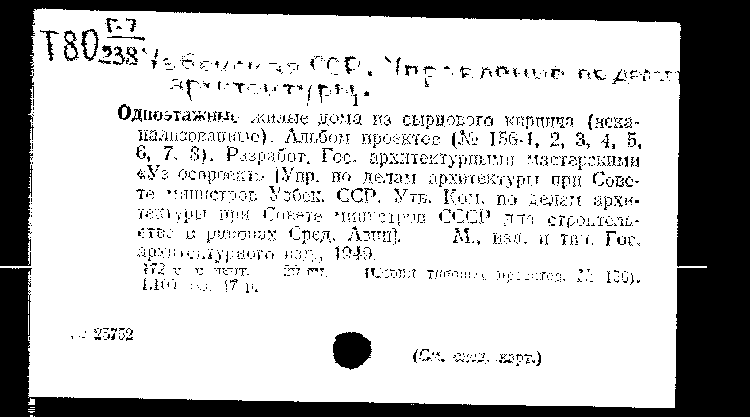 Г-7
Т80 238
Узбекская ССР. Управление по делам
архитектуры.
Одноэтажные жилые дома из сырцового кирпича (нека-
нализованные). Альбом проектов (№ 156-1, 2, 3, 4, 5,
6, 7, 8). Разработ. Гос. архитектурными мастерскими
«Узгоспроект» (Упр. по делам архитектуры при Сове-
те министров Узбек. ССР. Утв. Ком. по делам архи-
тектуры при Совете министров СССР для строитель-
ства в районах Сред. Азии). М., изд. и тип. Гос.
архитектурного изд., 1949.
172 с. с черт. 29 см. (Серия типовых проектов. № 156).
1.100 экз. 17 р.
25752
(См. след. карт.)